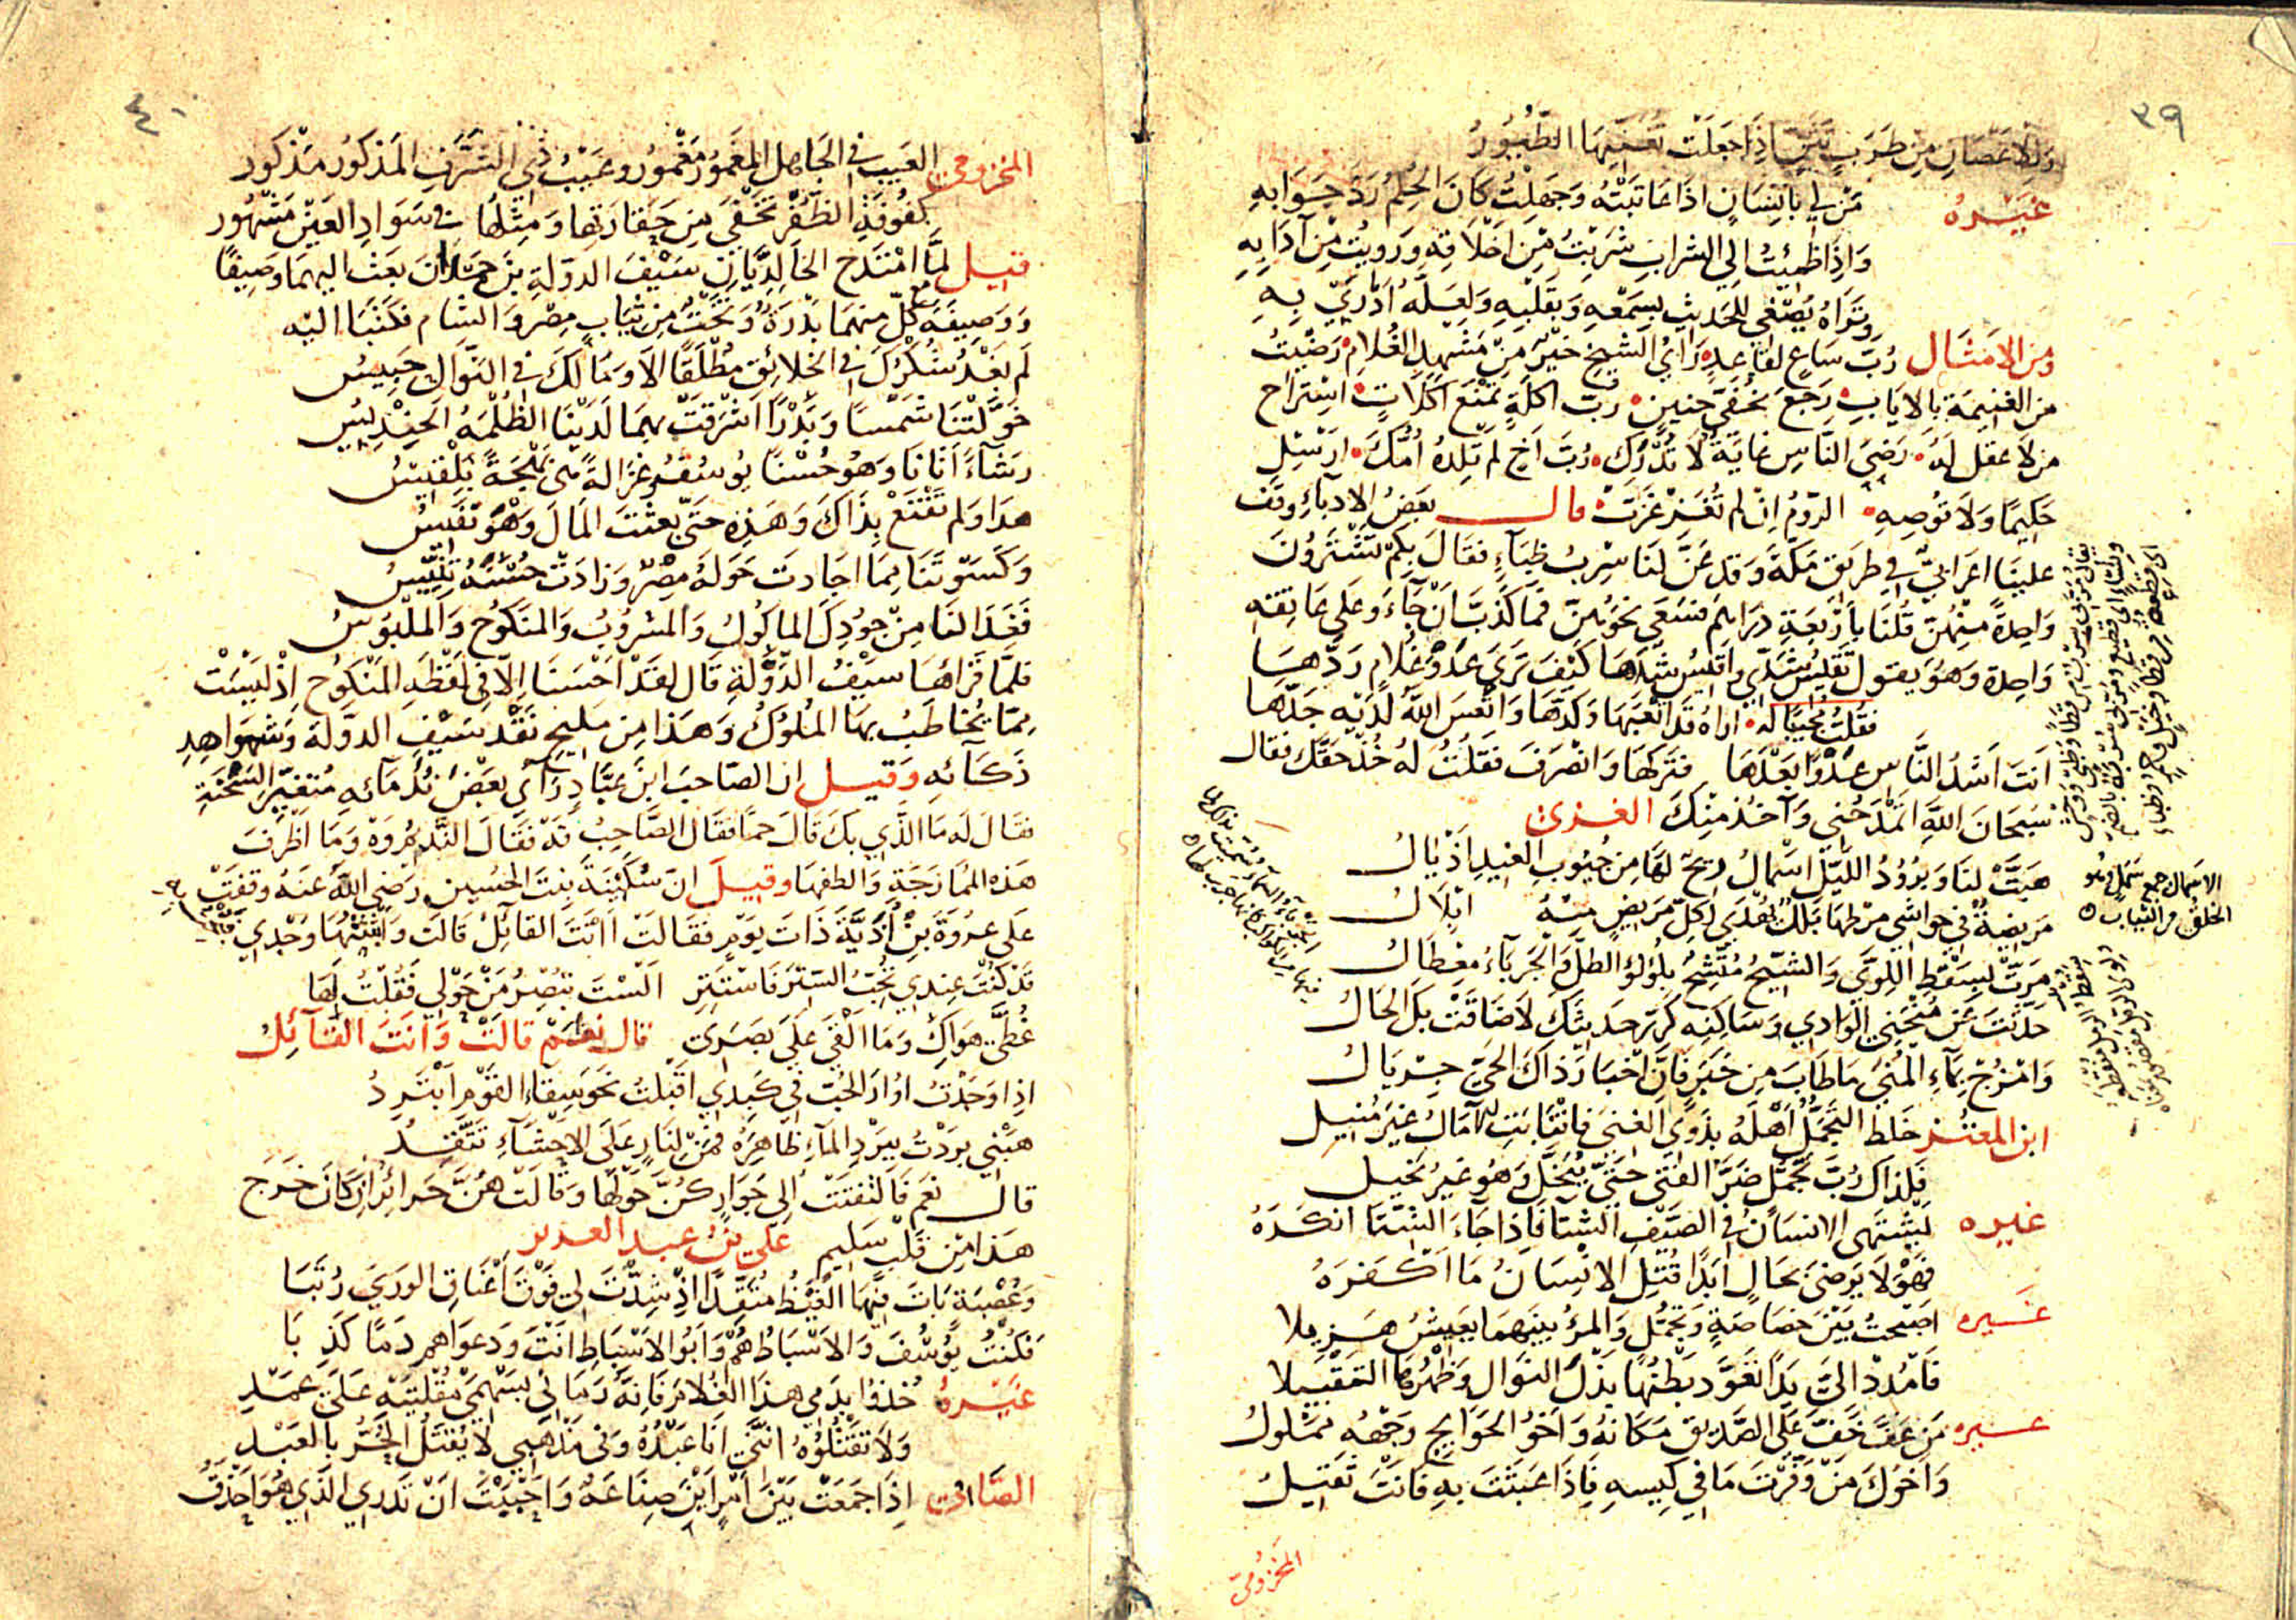 ٣٩
وللاغصان من طرب تثن اذا جعلت تغنيها الطيور
غيره
من لي بانسان اذا عاتبته وجهلت كان الحلم رد جوابه
واذا ظمئت الي الشراب شربت من اخلاقه ورويت من آدابه
وتراه يصغي للحديث بسمعه وبقلبه ولعله ادري به
ومن الامثال رب ساع لقاعد راي الشيخ خير من مشهد الغلام رضيت
من الغنيمة بالاياب رجع بخفي حنين رب اكلة تمنع اكلات استراح
من لا عقل له رضي الناس غاية لا تدرك رب اخ لم تلده امك ارسل
حكيما ولا توصه الروم ان لم تغز غزت قال بعض الادباء وقف
علينا اعرابي في طريق مكة وقد عن لنا سرب ظباء فقال بكم تشترون
واحدة منهن قلنا باربعة دراهم فسعي نحوهن فما كذب ان جاء وعلي عاتقه
واحدة وهو يقول تقيس شدي واقيس شدها كيف تري عدو غلام ردها
فقلت مجيبا له اراه قد اتعبها وكدها واتعس الله لديه جدها
انت اشد الناس عدوا بعدها فتركها وانصرف فقلت له خذ حقك فقال
سبحان الله اتمدحني وآخذ منك الغزي
هبت لنا وبرود الليل اسمال ريح لها من جيوب الغيد اذيال
مريضة في حواشي مرطها بلل تهدي لكل مريض منه ابلال
مرت لسقط اللوي والشيح متشح بلؤلؤ الطل والجرباء مغطال
حدثت عن منحني الوادي وساكنه كرر حديثك لا ضاقت بك الحال
وامزج بماء المني ما طاب من خبر فان اخبار ذاك الحي جريال
ابن المعتز خلط التجمل اهله بذوي الغني فانتابني لآمال غير منيل
فلذاك رب تجمل ضر الفتي حتي يبخل وهو غير بخيل
غيره يشتهي الانسان في الصيف الشتا فاذا جاء الشتا انكره
فهو لا يرضي بحال ابدا قتل الانسان ما اكفره
غيره اصبحت بين خصاصة وتجمل والمرء بينهما يعيش هزيلا
فامدد الي يدا تعود بطنها بذل النوال وظهرها التقبيلا
غيره من عف خف علي الصديق مكانه واخو الحوايج وجهه مملول
واخوك من وفرت ما في كيسه فاذا عبثت به فانت ثقيل
المخزومي
الاسمال جمع سمل وهو
الخلق من الثياب
٤٠
المخزومي العيب في الجاهل المغمور مغمور وعيب ذي الشرف المذكور مذكور
كفوفة الظفر تخفي من حقارتها ومثلها في سواد العين مشهور
قيل لما امتدح الخالديان سيف الدولة بن حمدان بعث اليهما وصيفا
ووصيفة مع كل منهما بدرة وتخت من ثياب مصر والشام فكتبا اليه
لم يغد شكرك في الخلائق مطلقا الا ومالك في النوال حبيس
خولتنا شمسا وبدرا اشرقت بهما لدينا الظلمه الحنديس
رشاء اتانا وهو حسنا يوسف وغزالة هي بهجة بلقيس
هذا ولم تقنع بذاك وهذه حتي بعثت المال وهو نفيس
وكسوتنا مما اجادت حوله مصر وزادت حسنه تنيس
فغدا لنا من جودك الماكول والمشروب والمنكوح والملبوس
فلما قراها سيف الدولة قال لقد احسنا الا في لفظه المنكوح اذ ليست
مما يخاطب بها الملوك وهذا من مليح نقد سيف الدولة وشهواهد
ذكائه وقيل ان الصاحب ابن عباد راي بعض ندمائه متغير السحنة
فقال له ما الذي بك قال حما فقال الصاحب قه فقال النديم وه وما اظرف
هذه الممازجة والطفها وقيل ان سكينة بنت الحسين رضي الله عنه وقفت
علي عروة بن اذية ذات يوم فقالت اانت القائل قالت وابثثتها وجدي
قد كنت عندي تحب الستر فاستتر الست تبصر من حولي فقلت لها
غطي هواك وما القي علي بصري قال نعم قالت وانت القائل
اذا وجدت اوار الحب في كبدي اقبلت نحو سقاء القوم ابترد
هبني بردت ببرد الماء ظاهره فمن لنار علي الاحشاء تتقد
قال نعم فالتفتت الي جوار كن حولها وقالت هن حرائر ان كان خرج
هذا من قلب سليم علي بن عبد العزيز
وعصبة بات فيها الغيظ متقدا اذ شدت لي فوق اعناق الوري رتبا
فكنت يوسف والاسباط هم وابو الاسباط انت ودعواهم دما كذبا
غيره خذوا بدمي هذا الغلام فانه رماني بسهمي مقلتيه علي عمد
ولا تقتلوه انني انا عبده وفي مذهبي لا يقتل الحر بالعبد
الصابي اذا جمعت بين امراين صناعه واحببت ان تدري الذي هو احذق